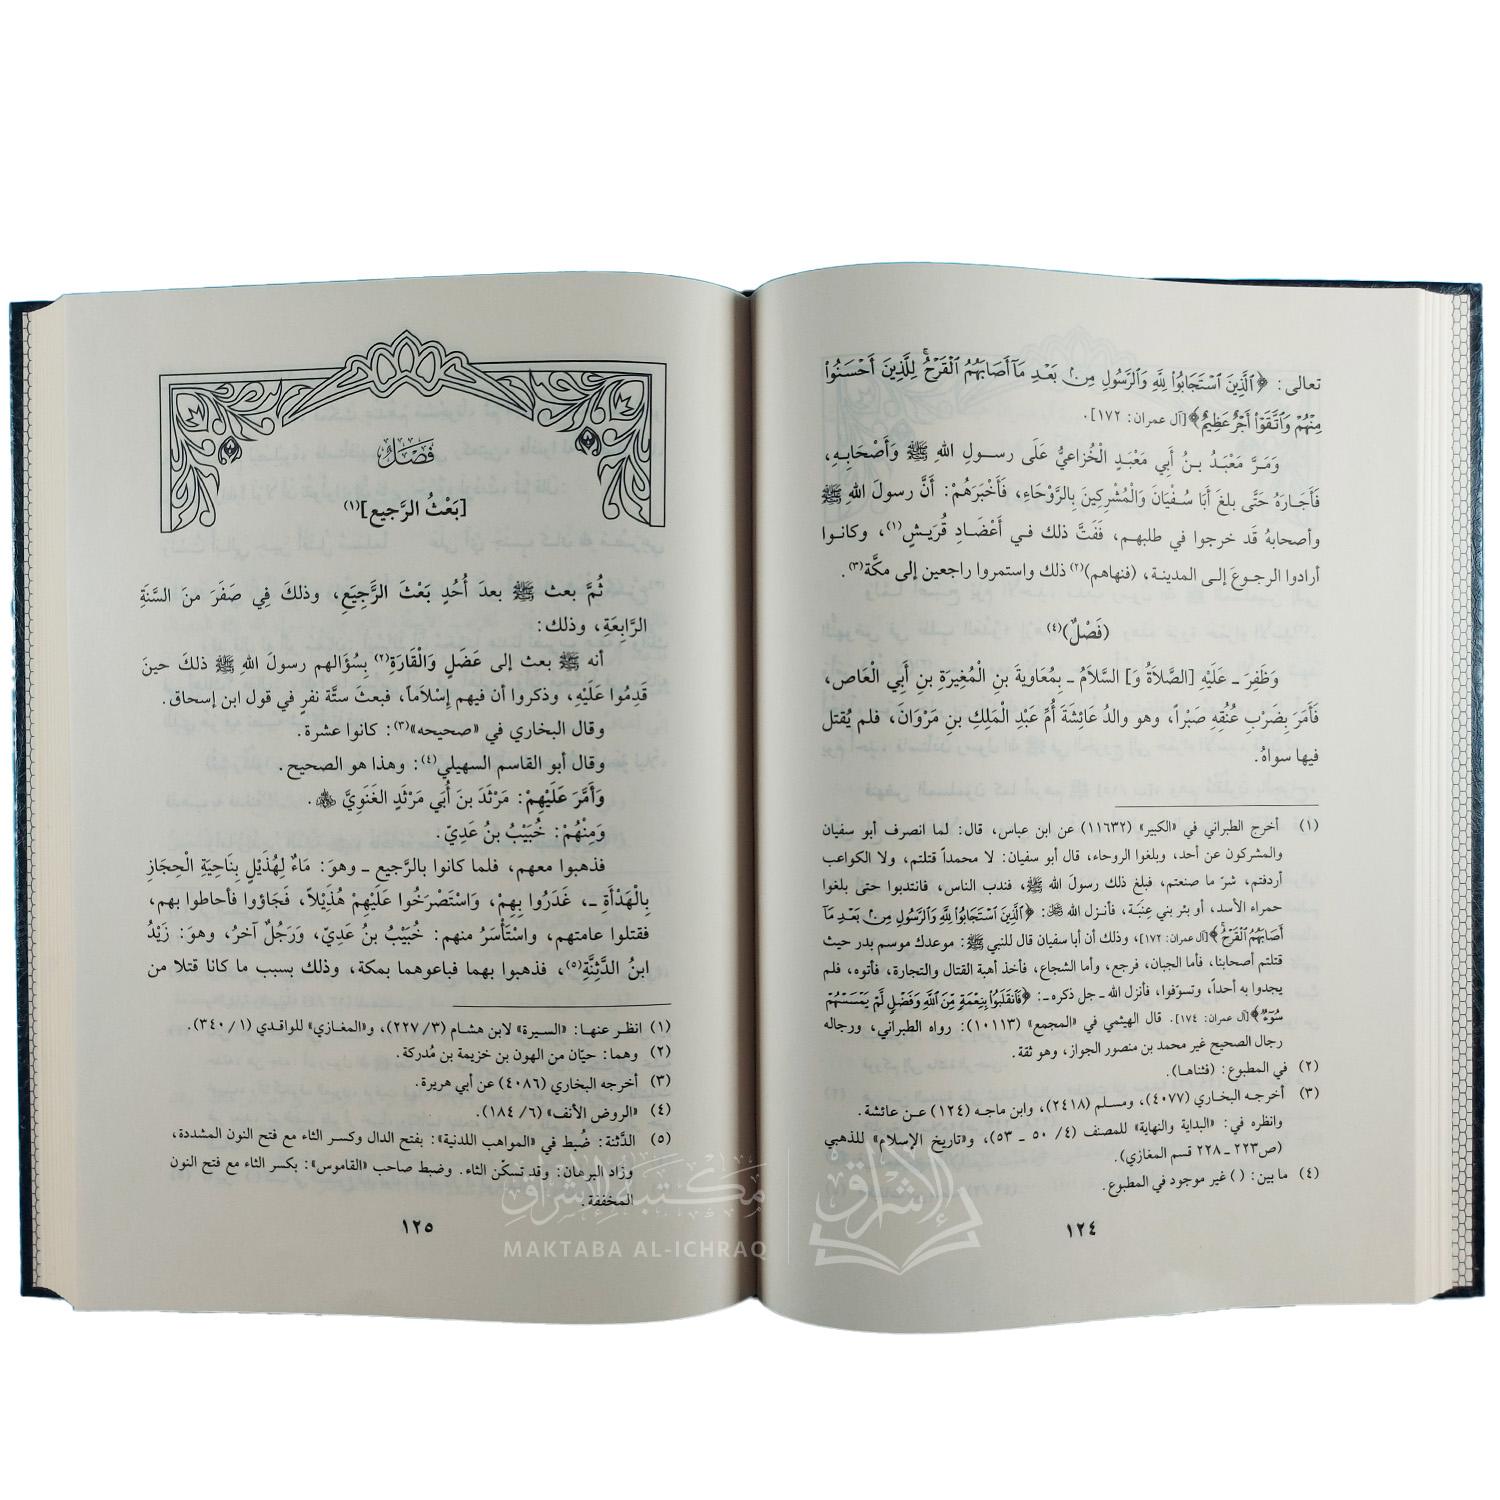 تعالى: ﴿ٱلَّذِينَ ٱسْتَجَابُوا۟ لِلَّهِ وَٱلرَّسُولِ مِنۢ بَعْدِ مَآ أَصَابَهُمُ ٱلْقَرْحُ ۚ لِلَّذِينَ أَحْسَنُوا۟
مِنْهُمْ وَٱتَّقَوْا۟ أَجْرٌ عَظِيمٌ﴾ [آل عمران: ١٧٢].
وَمَرَّ مَعْبَدُ بنُ أبي مَعْبَدٍ الْخُزاعيُّ عَلَى رسولِ اللهِ ﷺ وَأَصْحَابِهِ،
فَأَجَارَهُ حَتَّى بلغَ أَبَا سُفْيَانَ وَالْمُشْرِكِينَ بِالرَّوْحَاءِ، فَأَخْبَرَهُمْ: أَنَّ رسولَ اللهِ ﷺ
وأصحابهُ قَد خرجوا في طلبهم، فَفَتَّ ذلك في أَعْضَادِ قُرَيْشٍ(١)، وكانوا
أرادوا الرجوعَ إلى المدينة، (فنهاهم)(٢) ذلك واستمروا راجعين إلى مكَّة(٣).
(فَصْلٌ)(٤)
وَظَفِرَ ـ عَلَيْهِ [الصَّلَاةُ وَ] السَّلَامُ ـ بِمُعَاوِيةَ بنِ الْمُغِيرَةِ بنِ أَبِي الْعَاص،
فَأَمَرَ بِضَرْبِ عُنُقِهِ صَبْراً، وهو والدُ عَائِشَةَ أُمِّ عَبْدِ الْمَلِكِ بنِ مَرْوَانَ، فلم يُقتل
فيها سواهُ.
(١) أخرج الطبراني في «الكبير» (١١٦٣٢) عن ابن عباس، قال: لما انصرف أبو سفيان
والمشركون عن أحد، وبلغوا الروحاء، قال أبو سفيان: لا محمداً قتلتم، ولا الكواعب
أردفتم، شرّ ما صنعتم، فبلغ ذلك رسولَ الله ﷺ، فندب الناس، فانتدبوا حتى بلغوا
حمراء الأسد، أو بئر بني عِنَبَة، فأنزل الله ﷻ: ﴿ٱلَّذِينَ ٱسْتَجَابُوا۟ لِلَّهِ وَٱلرَّسُولِ مِنۢ بَعْدِ مَآ
أَصَابَهُمُ ٱلْقَرْحُ﴾ [آل عمران: ١٧٢]، وذلك أن أبا سفيان قال للنبي ﷺ: موعدك موسم بدر حيث
قتلتم أصحابنا، فأما الجبان، فرجع، وأما الشجاع، فأخذ أهبة القتال والتجارة، فأتوه، فلم
يجدوا به أحداً، وتسوّفوا، فأنزل الله ـ جل ذكره ـ: ﴿فَٱنقَلَبُوا۟ بِنِعْمَةٍ مِّنَ ٱللَّهِ وَفَضْلٍ لَّمْ يَمْسَسْهُمْ
سُوٓءٌ﴾ [آل عمران: ١٧٤]. قال الهيثمي في «المجمع» (١٠١١٣): رواه الطبراني، ورجاله
رجال الصحيح غير محمد بن منصور الجواز، وهو ثقة.
(٢) في المطبوع: (فثناها).
(٣) أخرجه البخاري (٤٠٧٧)، ومسلم (٢٤١٨)، وابن ماجه (١٢٤) عن عائشة.
وانظره في: «البداية والنهاية» للمصنف (٤/ ٥٠ ـ ٥٣)، و«تاريخ الإسلام» للذهبي
(ص٢٢٣ ـ ٢٢٨ قسم المغازي).
(٤) ما بين: ( ) غير موجود في المطبوع.
١٢٤
فَصْلٌ
[بَعْثُ الرَّجيعِ](١)
ثُمَّ بعث ﷺ بعدَ أُحُدٍ بَعْثَ الرَّجِيعِ، وذلكَ فِي صَفَرَ منَ السَّنَةِ
الرَّابِعَةِ، وذلك:
أنه ﷺ بعث إلى عَضَلٍ وَالْقَارَةِ(٢) بِسُؤَالهم رسولَ اللهِ ﷺ ذلكَ حينَ
قَدِمُوا عَلَيْهِ، وذكروا أن فيهم إِسْلَاماً، فبعثَ ستَّة نفرٍ في قول ابن إسحاق.
وقال البخاري في «صحيحه»(٣): كانوا عشرة.
وقال أبو القاسم السهيلي(٤): وهذا هو الصحيح.
وَأَمَّرَ عَلَيْهِمْ: مَرْثَدَ بنَ أَبي مَرْثَدٍ الغَنَوِيَّ ﷺ.
وَمِنْهُمْ: خُبَيْبُ بنُ عَدِيّ.
فذهبوا معهم، فلما كانوا بالرَّجيع ـ وهوَ: مَاءٌ لِهُذَيْلٍ بِنَاحِيَةِ الْحِجَازِ
بِالْهَدْأَةِ ـ، غَدَرُوا بِهِمْ، وَاسْتَصْرَخُوا عَلَيْهِمْ هُذَيْلاً، فَجَاؤوا فأحاطوا بهم،
فقتلوا عامتهم، واسْتَأْسَرُ منهم: خُبَيْبُ بنُ عَدِيّ، وَرَجُلٌ آخرُ، وهوَ: زَيْدُ
ابنُ الدَّثِنَّةِ(٥)، فذهبوا بهما فباعوهما بمكة، وذلك بسبب ما كانا قتلا من
(١) انظر عنها: «السيرة» لابن هشام (٣/ ٢٢٧)، و«المغازي» للواقدي (١/ ٣٤٠).
(٢) وهما: حيّان من الهون بن خزيمة بن مُدركة.
(٣) أخرجه البخاري (٤٠٨٦) عن أبي هريرة.
(٤) «الروض الأنف» (٦/ ١٨٤).
(٥) الدَّثنة: ضُبط في «المواهب اللدنية»: بفتح الدال وكسر الثاء مع فتح النون المشددة،
وزاد البرهان: وقد تسكّن الثاء. وضبط صاحب «القاموس»: بكسر الثاء مع فتح النون
المخففة.
١٢٥
الإشراق
مكتبة الإشراق
MAKTABA AL-ICHRAQ